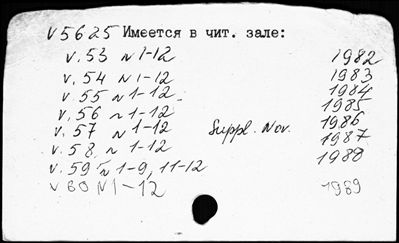 V5625 Имеется в чит. зале:
v.53 N 1-12 1982
v.54 N 1-12 1983
v.55 N 1-12 1984
v.56 N 1-12 1985
v.57 N 1-12 Suppl. Nov. 1986
v.58 N 1-12 1987
v.59 N 1-9, 11-12 1988
v 60 N 1-12 1989